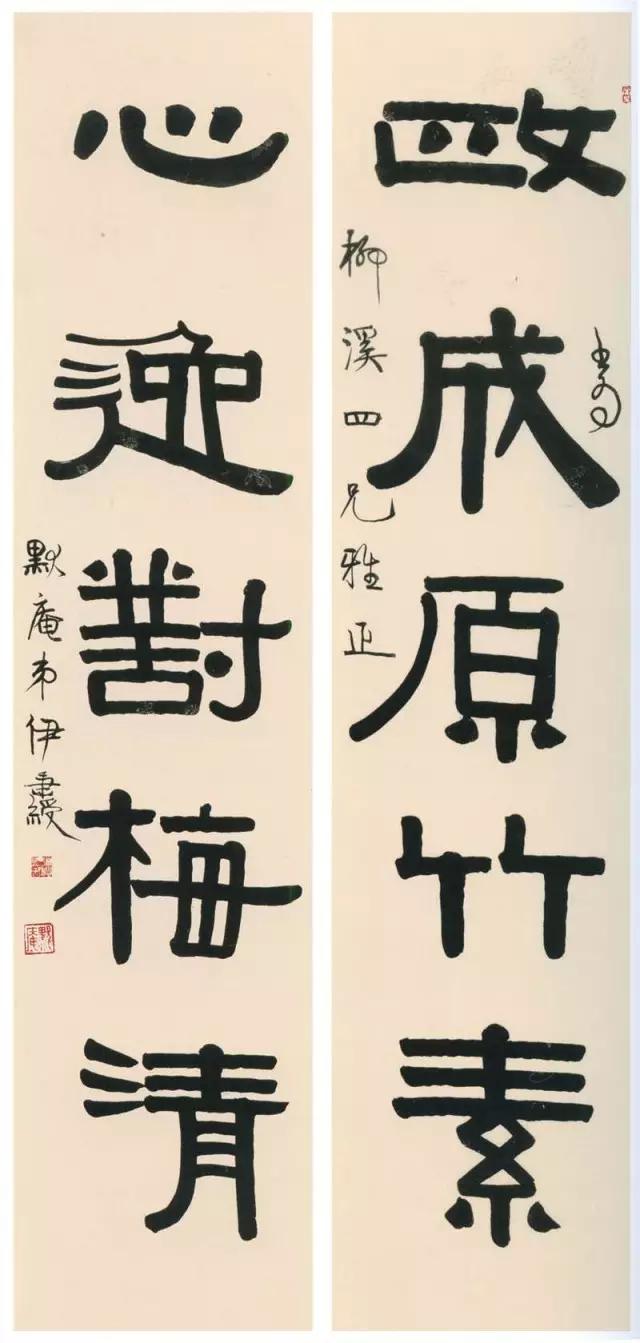 書為
政成原竹素
柳溪四兄雅正
心對梅清
默庵弟伊秉綬